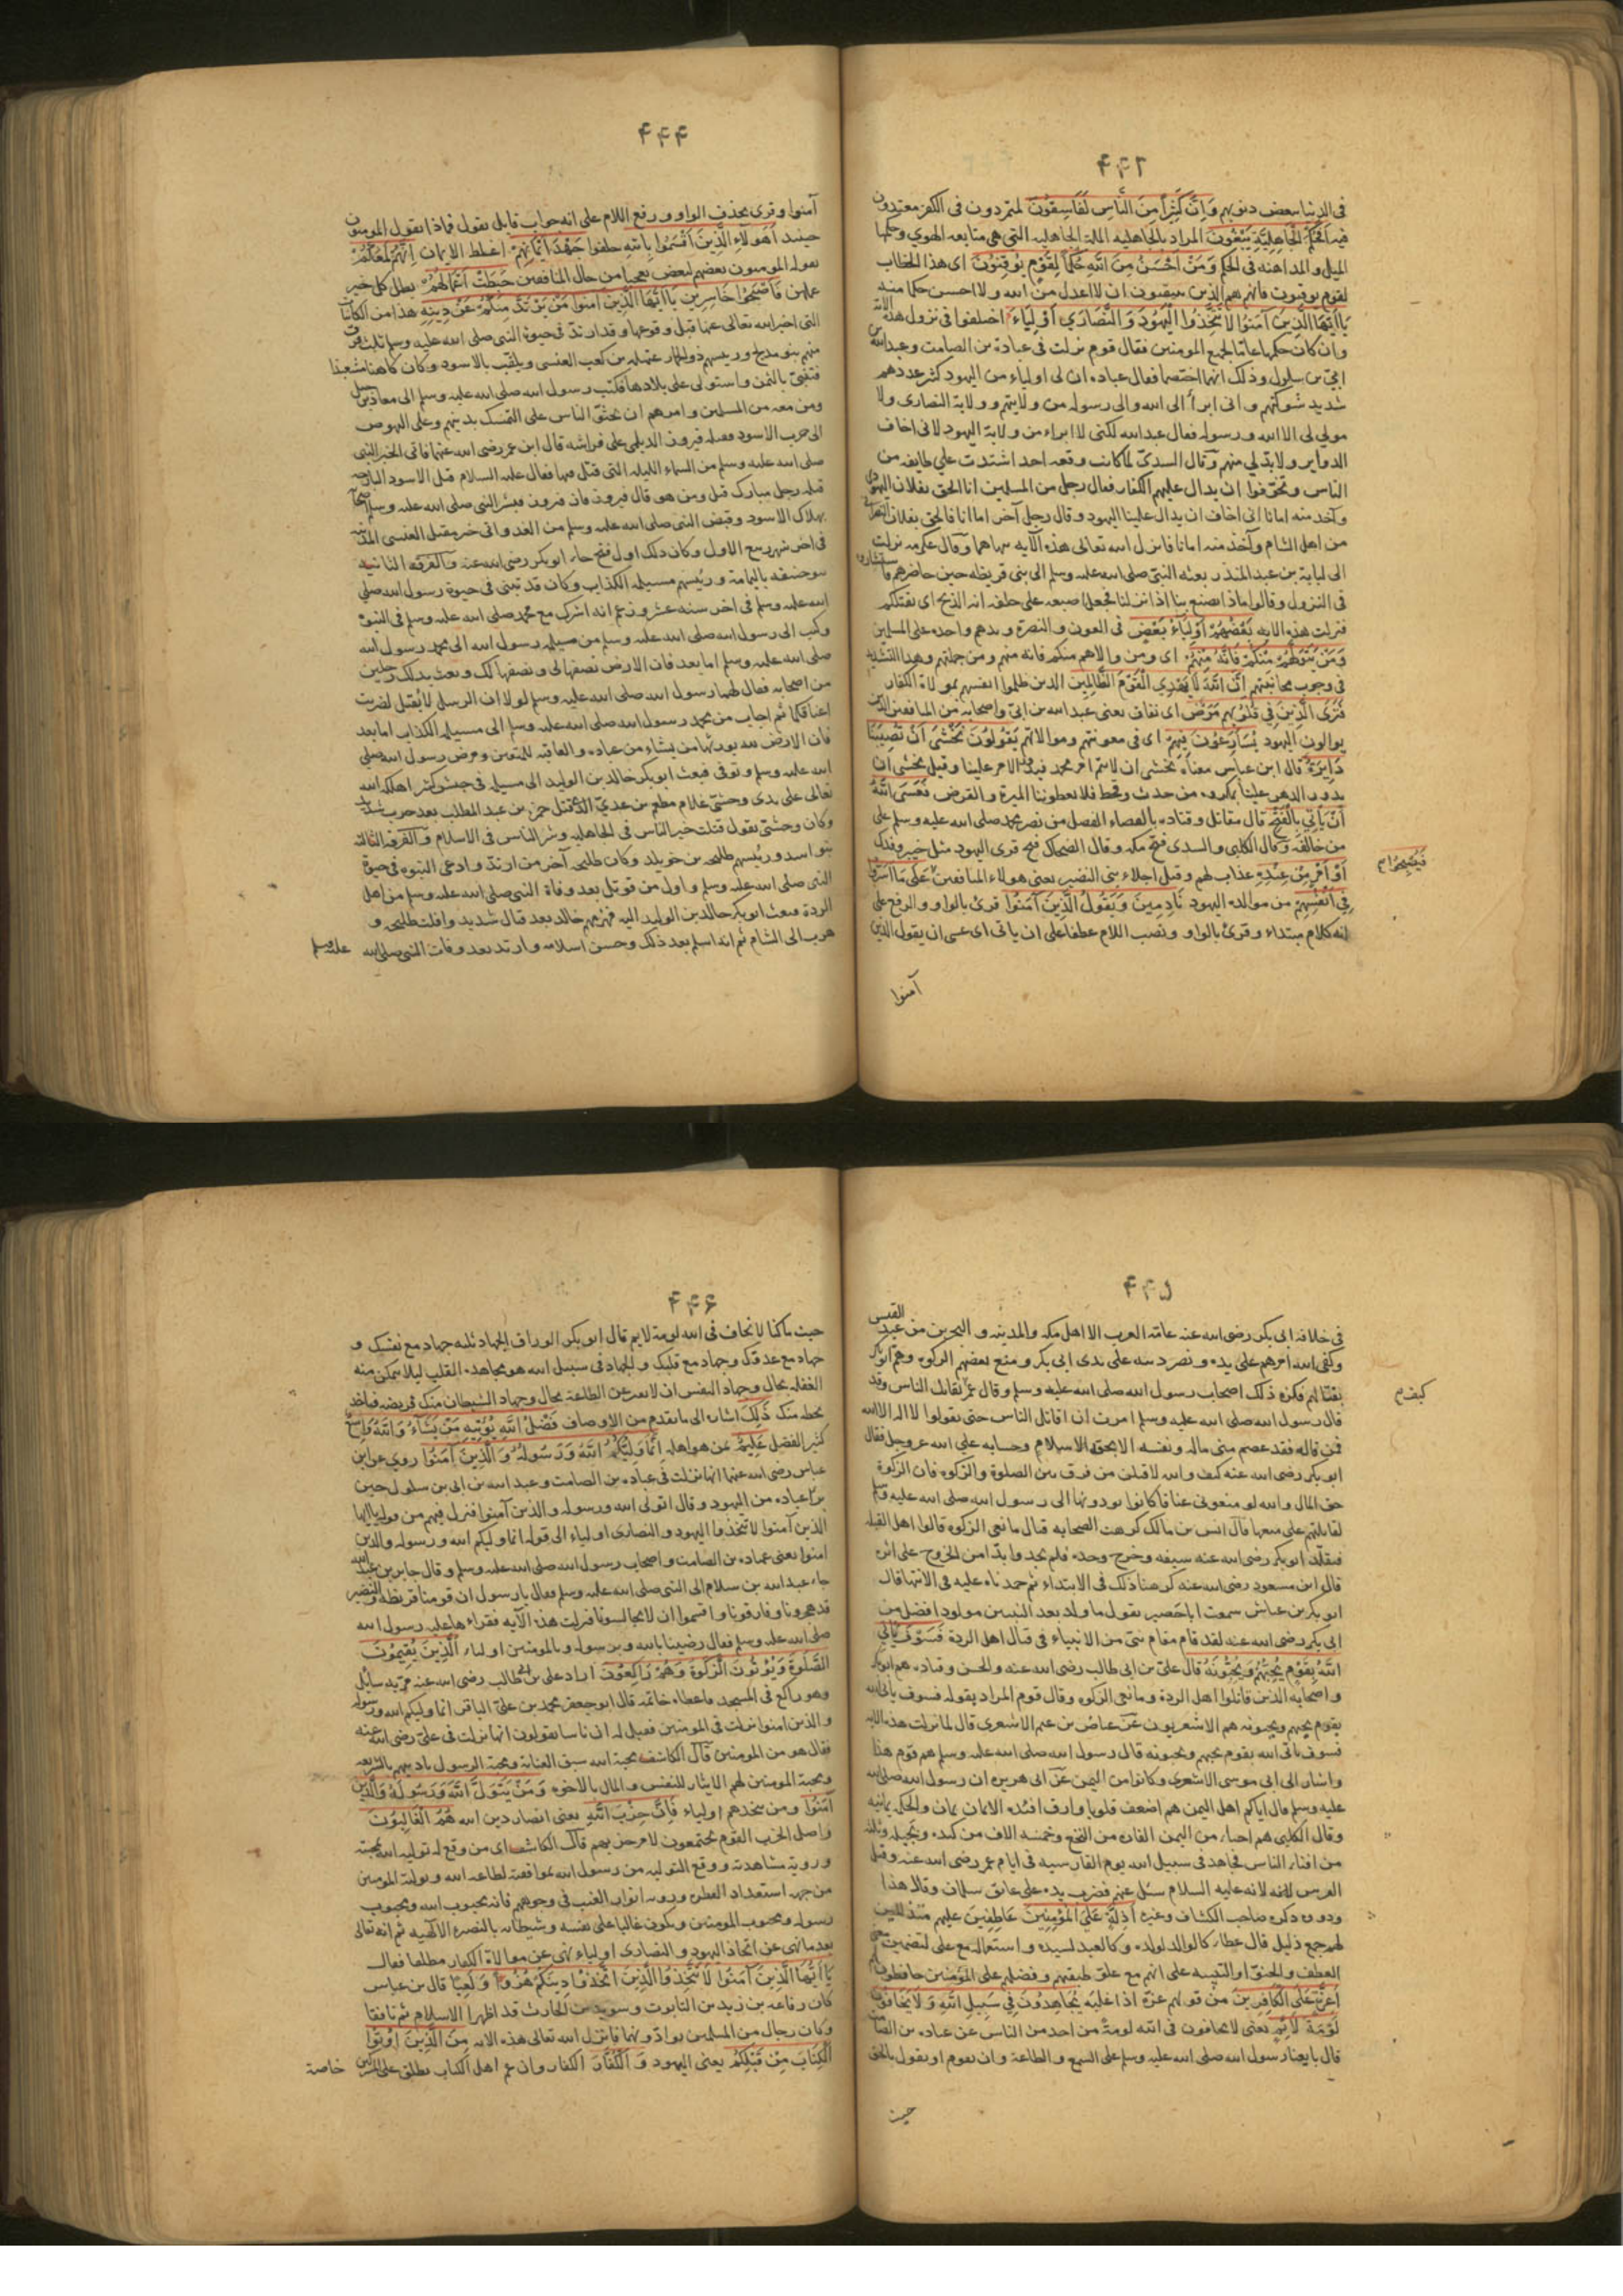 ۴۴۳
في الدنيا ببعض ذنوبهم وَاِنَّ كَثِيراً مِنَ النَّاسِ لَفَاسِقُونَ لمتمردون في الكفر معتدون
فيه اَفَحُكْمَ الْجَاهِلِيَّةِ يَبْغُونَ المراد بالجاهليه الملة الجاهليه التي هي متابعه الهوي وحكمها
الميل والمداهنه في الحكم وَمَنْ اَحْسَنُ مِنَ اللَّهِ حُكْماً لِقَوْمٍ يُوقِنُونَ اى هذا الخطاب
لقوم يوقنون فانهم هم الذين يتيقنون ان لا اعدل من الله ولا احسن حكما منه
يَا اَيُّهَا الَّذِينَ آمَنُوا لَا تَتَّخِذُوا الْيَهُودَ وَالنَّصَارَي اَوْلِيَاءَ اختلفوا في نزول هذه الآية
وان كان حكمها عاما لجميع المومنين فقال قوم نزلت في عبادة بن الصامت وعبد الله بن
ابيّ بن سلول وذلك انهما اختصما فقال عباده ان لى اولياء من اليهود كثير عددهم
شديد شوكتهم وانى ابرأ الى الله والى رسوله من ولايتهم وولاية النصارى ولا
مولي لى الا الله ورسوله فقال عبد الله لكنى لا ابراء من ولاية اليهود لانى اخاف
الدواير ولا بدّ لي منهم وقال السديّ لما كانت وقعه احد اشتدت علي طايفه من
الناس وتخوفوا ان يدال عليهم الكفار فقال رجل من المسلمين انا الحق بفلان اليهودى
وآخذ منه امانا انى اخاف ان يدال علينا اليهود وقال رجل آخر اما انا فالحق بفلان النصراني
من اهل الشام وآخذ منه امانا فانزل الله تعالى هذه الآيه ينهاهما وقال عكرمه نزلت
الى لبابة بن عبد المنذر بعثه النبيّ صلى الله عليه وسلم الى بنى قريظه حين حاصرهم فاستشاروه
في النزول وقالوا ماذا يصنع بنا اذا نزلنا فجعل اصبعه على حلقه انه الذبح اى يقتلكم
فنزلت هذه الايه بَعْضُهُمْ اَوْلِيَاءُ بَعْضٍ في العون والنصرة ويدهم واحده على المسلمين
وَمَنْ يَتَوَلَّهُمْ مِنْكُمْ فَاِنَّهُ مِنْهُمْ اى ومن والاهم منكم فانه منهم ومن جملتهم وهذا التشديد
في وجوب مجانبتهم اِنَّ اللَّهَ لَا يَهْدِي الْقَوْمَ الظَّالِمِينَ الذين ظلموا انفسهم بموالاة الكفار
فَتَرَى الَّذِينَ فِي قُلُوبِهِمْ مَرَضٌ اى نفاق يعنى عبد الله بن ابيّ واصحابه من المنافقين الذين
يوالون اليهود يُسَارِعُونَ فِيهِمْ اى في معونتهم وموالاتهم يَقُولُونَ نَخْشَى اَنْ تُصِيبَنَا
دَايِرَةٌ قال ابن عباس معناه نخشى ان لا يتم امر محمد فيدور الامر علينا وقيل نخشى ان
يدور الدهر علينا بمكروه من حدث وقحط فلا يعطوننا الميرة والقرض فَعَسَى اللَّهُ
اَنْ يَاْتِيَ بِالْفَتْحِ قال مقاتل وقتاده بالقضاء الفصل من نصر محمد صلى الله عليه وسلم على
من خالفه وقال الكلبى والسدى فتح مكه وقال الضحاك فتح قرى اليهود مثل خيبر وفدك
اَوْ اَمْرٍ مِنْ عِنْدِهِ عذاب لهم وقيل اجلاء بنى النضير يعنى هولاء المنافقين عَلَى مَا اَسَرُّوا
فِي اَنْفُسِهِمْ من موالاه اليهود نَادِمِينَ وَيَقُولُ الَّذِينَ آمَنُوا قرئ بالواو والرفع على
انه كلام مبتداء وقرئ بالواو ونصب اللام عطفا على ان ياتى اى عسى ان يقول الذين
فَيُصْبِحُوا
آمنوا
۴۴۴
آمنوا وقرى بحذف الواو ورفع اللام على انه جواب قايل يقول فماذا يقول المومنون
حينيذ اَهَؤُلَاءِ الَّذِينَ اَقْسَمُوا بِاللَّهِ حلفوا جَهْدَ اَيْمَانِهِمْ اغلظ الايمان اِنَّهُمْ لَمَعَكُمْ
يقوله المومنون بعضهم لبعض تعجبا من حال المنافقين حَبِطَتْ اَعْمَالُهُمْ بطل كل خير
عملوه فَاَصْبَحُوا خَاسِرِينَ يَا اَيُّهَا الَّذِينَ آمَنُوا مَنْ يَرْتَدَّ مِنْكُمْ عَنْ دِينِهِ هذا من الكائنات
التى اخبر الله تعالى عنها قبل وقوعها وقد ارتد في حيوة النبى صلى الله عليه وسلم ثلث فرق
منهم بنو مدلج ورييسهم ذو الخمار عبهله بن كعب العنسى ويلقب بالاسود وكان كاهنا مشعبذا
فتنبّى باليمن واستولى على بلادها فكتب رسول الله صلى الله عليه وسلم الى معاذ بن جبل
ومن معه من المسلمين وامرهم ان يحثوا الناس على التمسك بدينهم وعلى النهوض
الى حرب الاسود فقتله فيروز الديلمى على فراشه قال ابن عمر رضى الله عنهما فاتى الخبر النبى
صلى الله عليه وسلم من السماء الليله التى قتل فيها فقال عليه السلام قتل الاسود البارحه
قتله رجل مبارك قيل ومن هو قال فيروز فاز فيروز فبشر النبى صلى الله عليه وسلم اصحابه
بهلاك الاسود وقبض النبى صلى الله عليه وسلم من الغد واتى خبر مقتل العنسى المدينه
في اخر شهر ربيع الاول وكان ذلك اول فتح جاء ابو بكر رضى الله عنه والفرقه الثانيه
بنو حنيفه باليمامة ورئيسهم مسيلمه الكذاب وكان قد تنبى في حيوة رسول الله صلى
الله عليه وسلم في اخر سنه عشر وزعم انه اشرك مع محمد صلى الله عليه وسلم في النبوة
وكتب الى رسول الله صلى الله عليه وسلم من مسيلمه رسول الله الى محمد رسول الله
صلى الله عليه وسلم اما بعد فان الارض نصفها لى ونصفها لك وبعث بذلك رجلين
من اصحابه فقال لهما رسول الله صلى الله عليه وسلم لولا ان الرسل لا يُقتل لضربت
اعناقكما ثم اجاب من محمد رسول الله صلى الله عليه وسلم الى مسيلمه الكذاب اما بعد
فان الارض لله يورثها من يشاء من عباده والعاقبه للمتقين ومرض رسول الله صلى
الله عليه وسلم وتوفى فبعث ابو بكر خالد بن الوليد الى مسيلمه في جيش كثير اهلكه الله
تعالى على يدى وحشى غلام مطعم بن عديّ الذى قتل حمزه بن عبد المطلب بعد حرب شديد
وكان وحشى يقول قتلت خير الناس في الجاهليه وشر الناس في الاسلام والفرقه الثالثه
بنو اسد ورئيسهم طليحه بن خويلد وكان طليحه آخر من ارتد وادعى النبوه في حيوة
النبى صلى الله عليه وسلم واول من قوتل بعد وفاة النبى صلى الله عليه وسلم من اهل
الردة فبعث ابو بكر خالد بن الوليد اليه فهزمهم خالد بعد قتال شديد وافلت طليحه و
هرب الى الشام ثم انه اسلم بعد ذلك وحسن اسلامه وارتد بعد وفات النبى صلى الله عليه وسلم
۴۴۵
في خلافه ابى بكر رضى الله عنه عامّه العرب الا اهل مكه والمدينه والبحرين من عبد القيس
وكفى الله امرهم على يده ونصر دينه على يدى ابى بكر ومنع بعضهم الزكوه وهمّ ابو بكر
بقتالهم فكره ذلك اصحاب رسول الله صلى الله عليه وسلم وقال عمر تقاتل الناس وقد
قال رسول الله صلى الله عليه وسلم امرت ان اقاتل الناس حتى يقولوا لا اله الا الله
فمن قاله فقد عصم منى ماله ونفسه الا بحق الاسلام وحسابه على الله عز وجل فقال
ابو بكر رضى الله عنه كيف والله لاقتلن من فرق بين الصلوة والزكوه فان الزكوة
حق المال والله لو منعونى عناقا كانوا يودونها الى رسول الله صلى الله عليه وسلم
لقاتلتهم على منعها قال انس بن مالك كرهت الصحابه قتال مانعى الزكوه قالوا اهل القبله
فتقلد ابو بكر رضى الله عنه سيفه وخرج وحده فلم يجدوا بدّا من الخروج على اثره
قال ابن مسعود رضى الله عنه كرهنا ذلك في الابتداء ثم حمدناه عليه في الانتها قال
ابو بكر بن عياش سمعت ابا حصير يقول ما ولد بعد النبيين مولود افضل من
ابى بكر رضى الله عنه لقد قام مقام نبى من الانبياء في قتال اهل الردة فَسَوْفَ يَاْتِي
اللَّهُ بِقَوْمٍ يُحِبُّهُمْ وَيُحِبُّونَهُ قال عليّ بن ابى طالب رضى الله عنه والحسن وقتاده هم ابو بكر
واصحابه الذين قاتلوا اهل الردة ومانعى الزكوه وقال قوم المراد بقوله فسوف ياتى الله
بقوم يحبهم ويحبونه هم الاشعريون عن عياض بن غنم الاشعرى قال لما نزلت هذه الايه
فسوف ياتى الله بقوم يحبهم ويحبونه قال رسول الله صلى الله عليه وسلم هم قوم هذا
واشار الى ابى موسى الاشعرى وكانوا من اليمن عن ابى هريره ان رسول الله صلى الله
عليه وسلم قال اتاكم اهل اليمن هم اضعف قلوبا وارق افئده الايمان يمان والحكمه يمانيه
وقال الكلبى هم احياء من اليمن الفان من النخع وخمسه الاف من كنده وبجيله وثلثه
من افناء الناس فجاهد في سبيل الله يوم القادسيه في ايام عمر رضى الله عنه وقيل
الفرس لانه عليه السلام سئل عنهم فضرب يده على عاتق سلمان وقال هذا
وذووه ذكره صاحب الكشاف وغيره اَذِلَّةٍ عَلَى الْمُؤْمِنِينَ عاطفين عليهم متذللين
لهم جمع ذليل قال عطاء كالوالد لولده وكالعبد لسيده واستعماله مع على لتضمين معنى
العطف والحنو او التنبيه على انهم مع علو طبقتهم وفضلهم على المؤمنين خافضون لهم
اَعِزَّةٍ عَلَى الْكَافِرِينَ من قولهم عزه اذا غلبه يُجَاهِدُونَ فِي سَبِيلِ اللَّهِ وَلَا يَخَافُونَ
لَوْمَةَ لَائِمٍ يعنى لا يخافون في الله لومةً من احد من الناس عن عباده بن الصامت
قال بايعنا رسول الله صلى الله عليه وسلم على السمع والطاعة وان نقوم او نقول بالحق
كيف
حيث
۴۴۶
حيث ما كنا لا نخاف في الله لومة لايم قال ابو بكر الوراق الجهاد ثلثه جهاد مع نفسك و
جهاد مع عدوك وجهاد مع قلبك والجهاد في سبيل الله هو مجاهده القلب ليلا يتمكن منه
الغفله بحال وجهاد النفس ان لا تفتر عن الطاعة بحال وجهاد الشيطان منك فريضه فياخذ
بحظه منك ذَلِكَ اشاره الى ما تقدم من الاوصاف فَضْلُ اللَّهِ يُؤْتِيهِ مَنْ يَشَاءُ وَاللَّهُ وَاسِعٌ
كثير الفضل عَلِيمٌ بمن هو اهله اِنَّمَا وَلِيُّكُمُ اللَّهُ وَرَسُولُهُ وَالَّذِينَ آمَنُوا روى عن ابن
عباس رضى الله عنهما انها نزلت في عباده بن الصامت وعبد الله بن ابى بن سلول حين
تبرأ عباده من اليهود وقال اتولى الله ورسوله والذين آمنوا فنزل فيهم من قوله يا ايها
الذين آمنوا لا تتخذوا اليهود والنصارى اولياء الى قوله انما وليكم الله ورسوله والذين
امنوا يعنى عباده بن الصامت واصحاب رسول الله صلى الله عليه وسلم وقال جابر بن عبد الله
جاء عبد الله بن سلام الى النبى صلى الله عليه وسلم فقال يا رسول ان قومنا قريظه والنضير
قد هجرونا وفارقونا واقسموا ان لا يجالسونا فنزلت هذه الآيه فقراءها عليه رسول الله
صلى الله عليه وسلم فقال رضينا بالله وبرسوله وبالمومنين اولياء اَلَّذِينَ يُقِيمُونَ
الصَّلَوةَ وَيُؤْتُونَ الزَّكَوةَ وَهُمْ رَاكِعُونَ اراد على بن ابى طالب رضى الله عنه مرّ به سايل
وهو راكع في المسجد فاعطاه خاتمه قال ابو جعفر محمد بن عليّ الباقر انما وليكم الله ورسوله
والذين امنوا نزلت في المومنين فقيل له ان ناسا يقولون انها نزلت في عليّ رضى الله عنه
فقال هو من المومنين قال الكاشف محبة الله سبق العناية ومحبة الرسول تاديبهم بالشريعه
ومحبة المومنين لهم الايثار للنفس والمال بالاخوه وَمَنْ يَتَوَلَّ اللَّهَ وَرَسُولَهُ وَالَّذِينَ
آمَنُوا ومن يتخذهم اولياء فَاِنَّ حِزْبَ اللَّهِ يعنى انصار دين الله هُمُ الْغَالِبُونَ
واصل الحزب القوم يجتمعون لامر حزبهم قال الكاشف اى من وقع له تولية الله محبته
وروية مشاهدته ووقع التوليه من رسول الله بموافقته لطاعه الله وتولية المومنين
من جهه استعداد الفطره وروية انوار الغيب في وجوههم فانه محبوب الله ومحبوب
رسوله ومحبوب المومنين ويكون غالبا على نفسه وشيطانه بالنصره الالهيه ثم انه تعالى
بعد ما نهى عن اتخاذ اليهود والنصارى اولياء نهى عن موالاة الكفار مطلقا فقال
يَا اَيُّهَا الَّذِينَ آمَنُوا لَا تَتَّخِذُوا الَّذِينَ اتَّخَذُوا دِينَكُمْ هُزُوًا وَلَعِبًا قال بن عباس
كان رفاعه بن زيد بن التابوت وسويد بن الحارث قد اظهرا الاسلام ثم نافقا
وكان رجال من المسلمين يوادونهما فانزل الله تعالى هذه الايه مِنَ الَّذِينَ اُوتُوا
الْكِتَابَ مِنْ قَبْلِكُمْ يعنى اليهود وَالْكُفَّارَ الكفار وان عم اهل الكتاب يطلق على المشركين خاصة